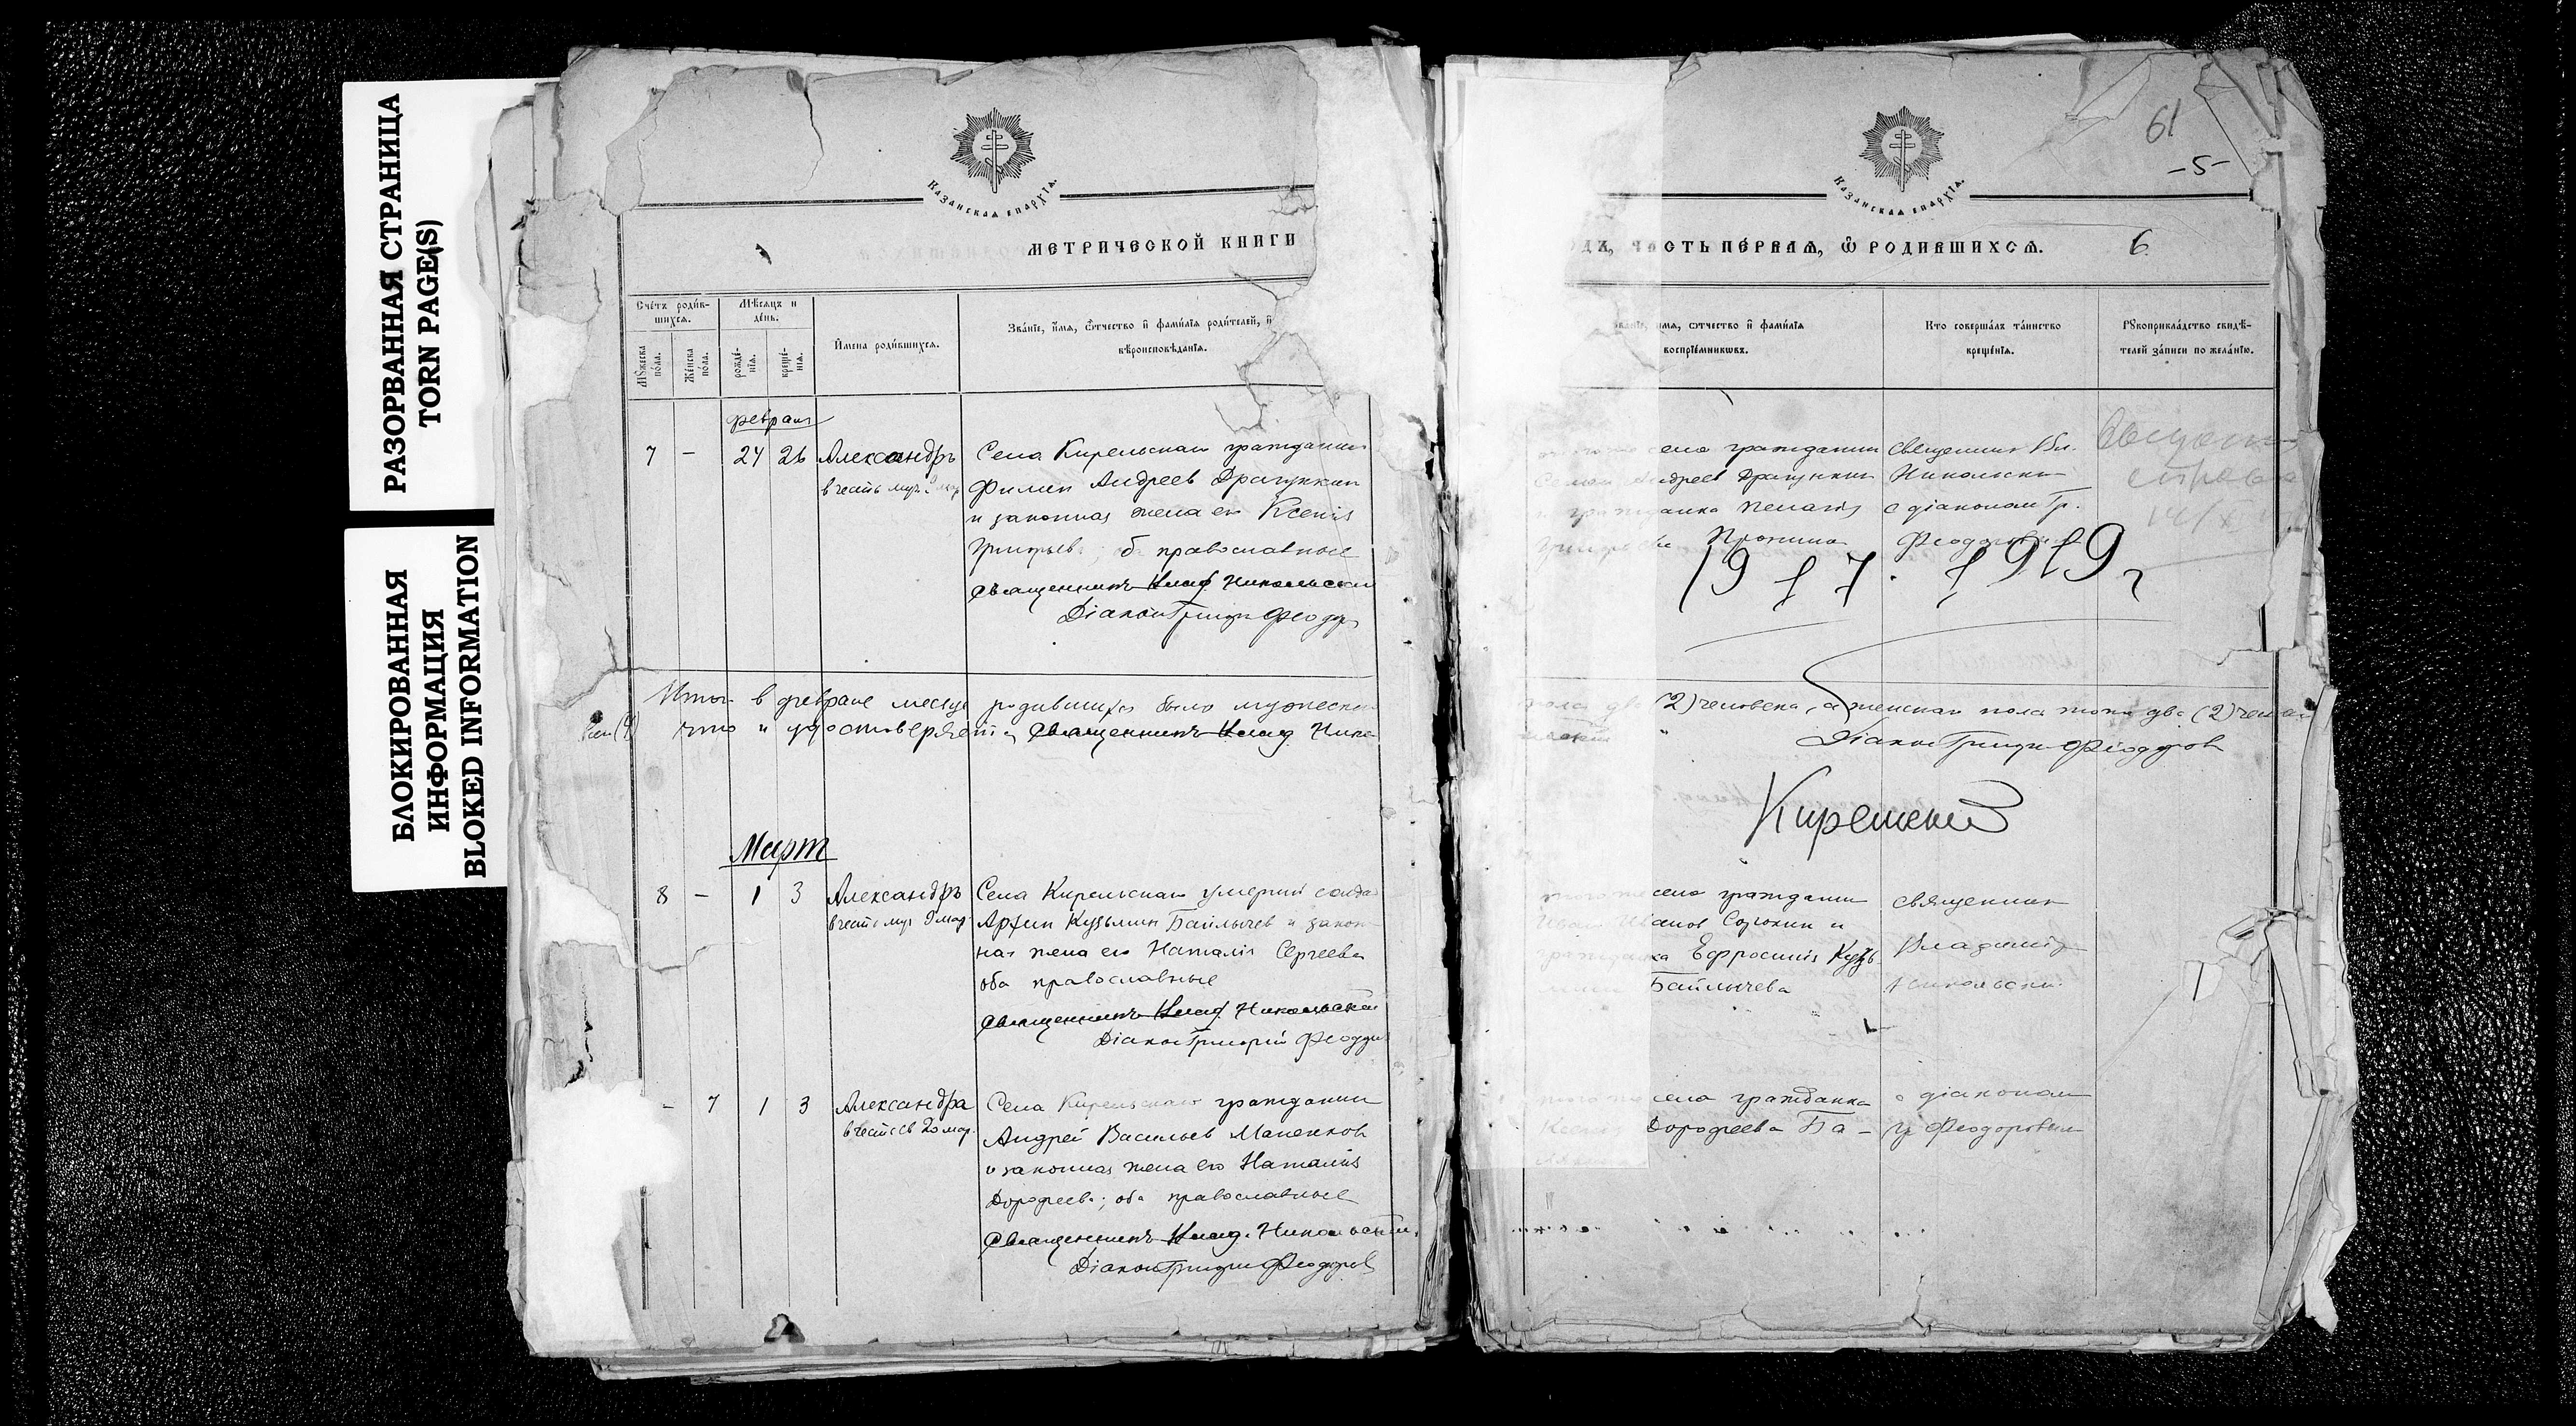 РАЗОРВАННАЯ СТРАНИЦА
TORN PAGE(S)
БЛОКИРОВАННАЯ
ИНФОРМАЦИЯ
BLOKED INFORMATION
Казанская епархія.
МЕТРИЧЕСКОЙ КНИГИ
Счетъ родив-
шихся.
Мѣсяцъ и
день.
Имена родившихся.
Званіе, имя, отчество и фамилія родителей, и
вѣроисповѣданія.
Мужеска пола.
Женска пола.
рожде-
нія.
креще-
нія.
февраля
7 - 24 26 Александръ
в честь муч. 9 мар
Села Кирельскаго гражданин
Филип Андреев Драгункин
и законная жена его Ксенія
Григорьева; об православные
Священникъ Влад. Никольский
Діакон Григорій Феодор
Итого в феврале месяце родившихся было мужеска
что и удостоверяем Священникъ Влад. Нико
Март
8 - 1 3 Александръ
в честь муч 9 мар
Села Кирельскаго умерший солда
Архип Кузьмин Байлычев и закон
ная жена его Наталія Сергеева
оба православные
Священникъ Влад. Никольский
Діакон Григорій Феодор
- 7 1 3 Александра
в честь св 20 мар.
Села Кирельскаго гражданин
Андрей Васильев Мапенков
и законная жена его Наталія
Дорофеева; оба православные
Священникъ Влад. Никольский
Діакон Григорій Феодоров
61
-5-
Казанская епархія.
ДЪ, ЧАСТЬ ПЕРВАЯ, Ѡ РОДИВШИХСЯ. 6
Званіе, имя, отчество и фамилія
воспріемниковъ.
Кто совершалъ таинство
крещенія.
Рукоприкладство свидѣ-
телей записи по желанію.
села гражданин
Семен Андреев Драгункин
гражданка Пелагія
Григорьева Пронина
Священник Вл.
Никольский
с діаконом Гр.
Феодоровым
1917. 1919 г
пола два (2) человека, а женскаго пола тоже два (2) человека
Діакон Григорій Феодоров
Того же села гражданин
Иван Иванов Сорокин и
гражданка Ефросинія Кузь
Байлычева
Священник
Владимір
Никольский
Того же села гражданка
Ксенія Дорофеева Ба-
с діаконом
Гр Феодоровым